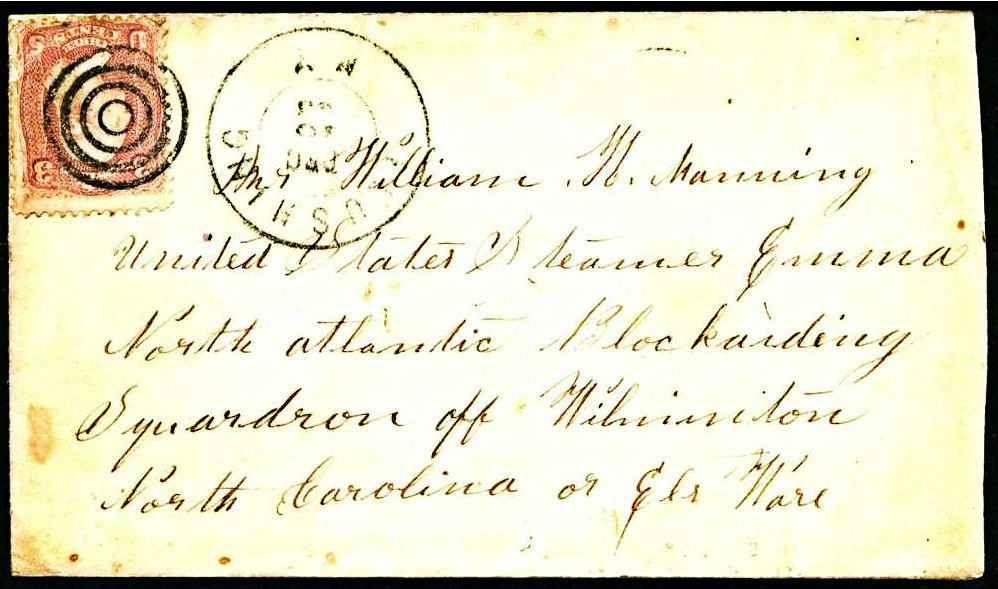 William H. Manning
United States Steamer Emma
North atlantic Blockaiding
Squardron off Wilminiton
North Carolina or Els Ware